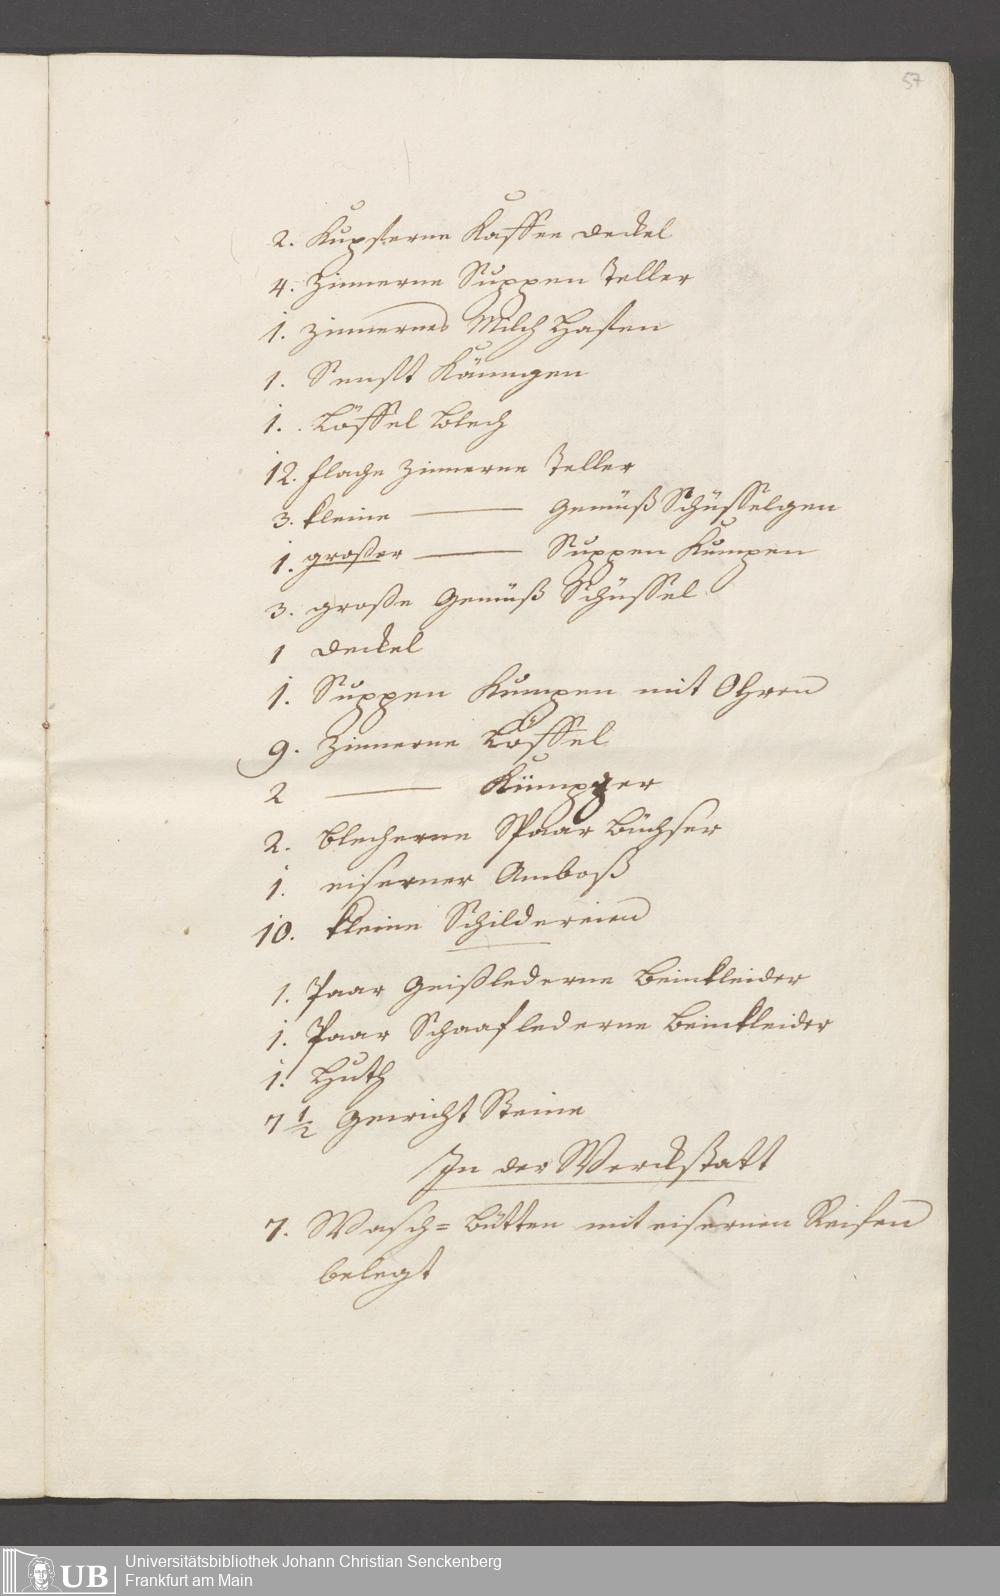 57
2. Kupferne Kaffee Deckel
4. Zinnerne Suppen Teller
1. zinnernes Milch Hafen
1. Senft Känngen
1. Löffel Blech
12. flache Zinnerne Teller
3. kleine ——— Gemüß Schüsselgen
1. großer ——— Suppen Kumpen
3. große Gemüß Schüssel
1 Deckel
1. Suppen Kumpen mit Ohren
9. Zinnerne Löffel
2 ———
2. blecherne Spaar Büchser
1. eiserner Amboß
10. kleine Schildereien
1. Paar Geißlederne Beinkleider
1. Paar Schaaflederne Beinkleider
1. Huth
7 1/2 Gewicht Steine
In der Werckstatt
7. Wasch= Bütten mit eisernen Reifen
belegt
UB
Universitätsbibliothek Johann Christian Senckenberg
Frankfurt am Main